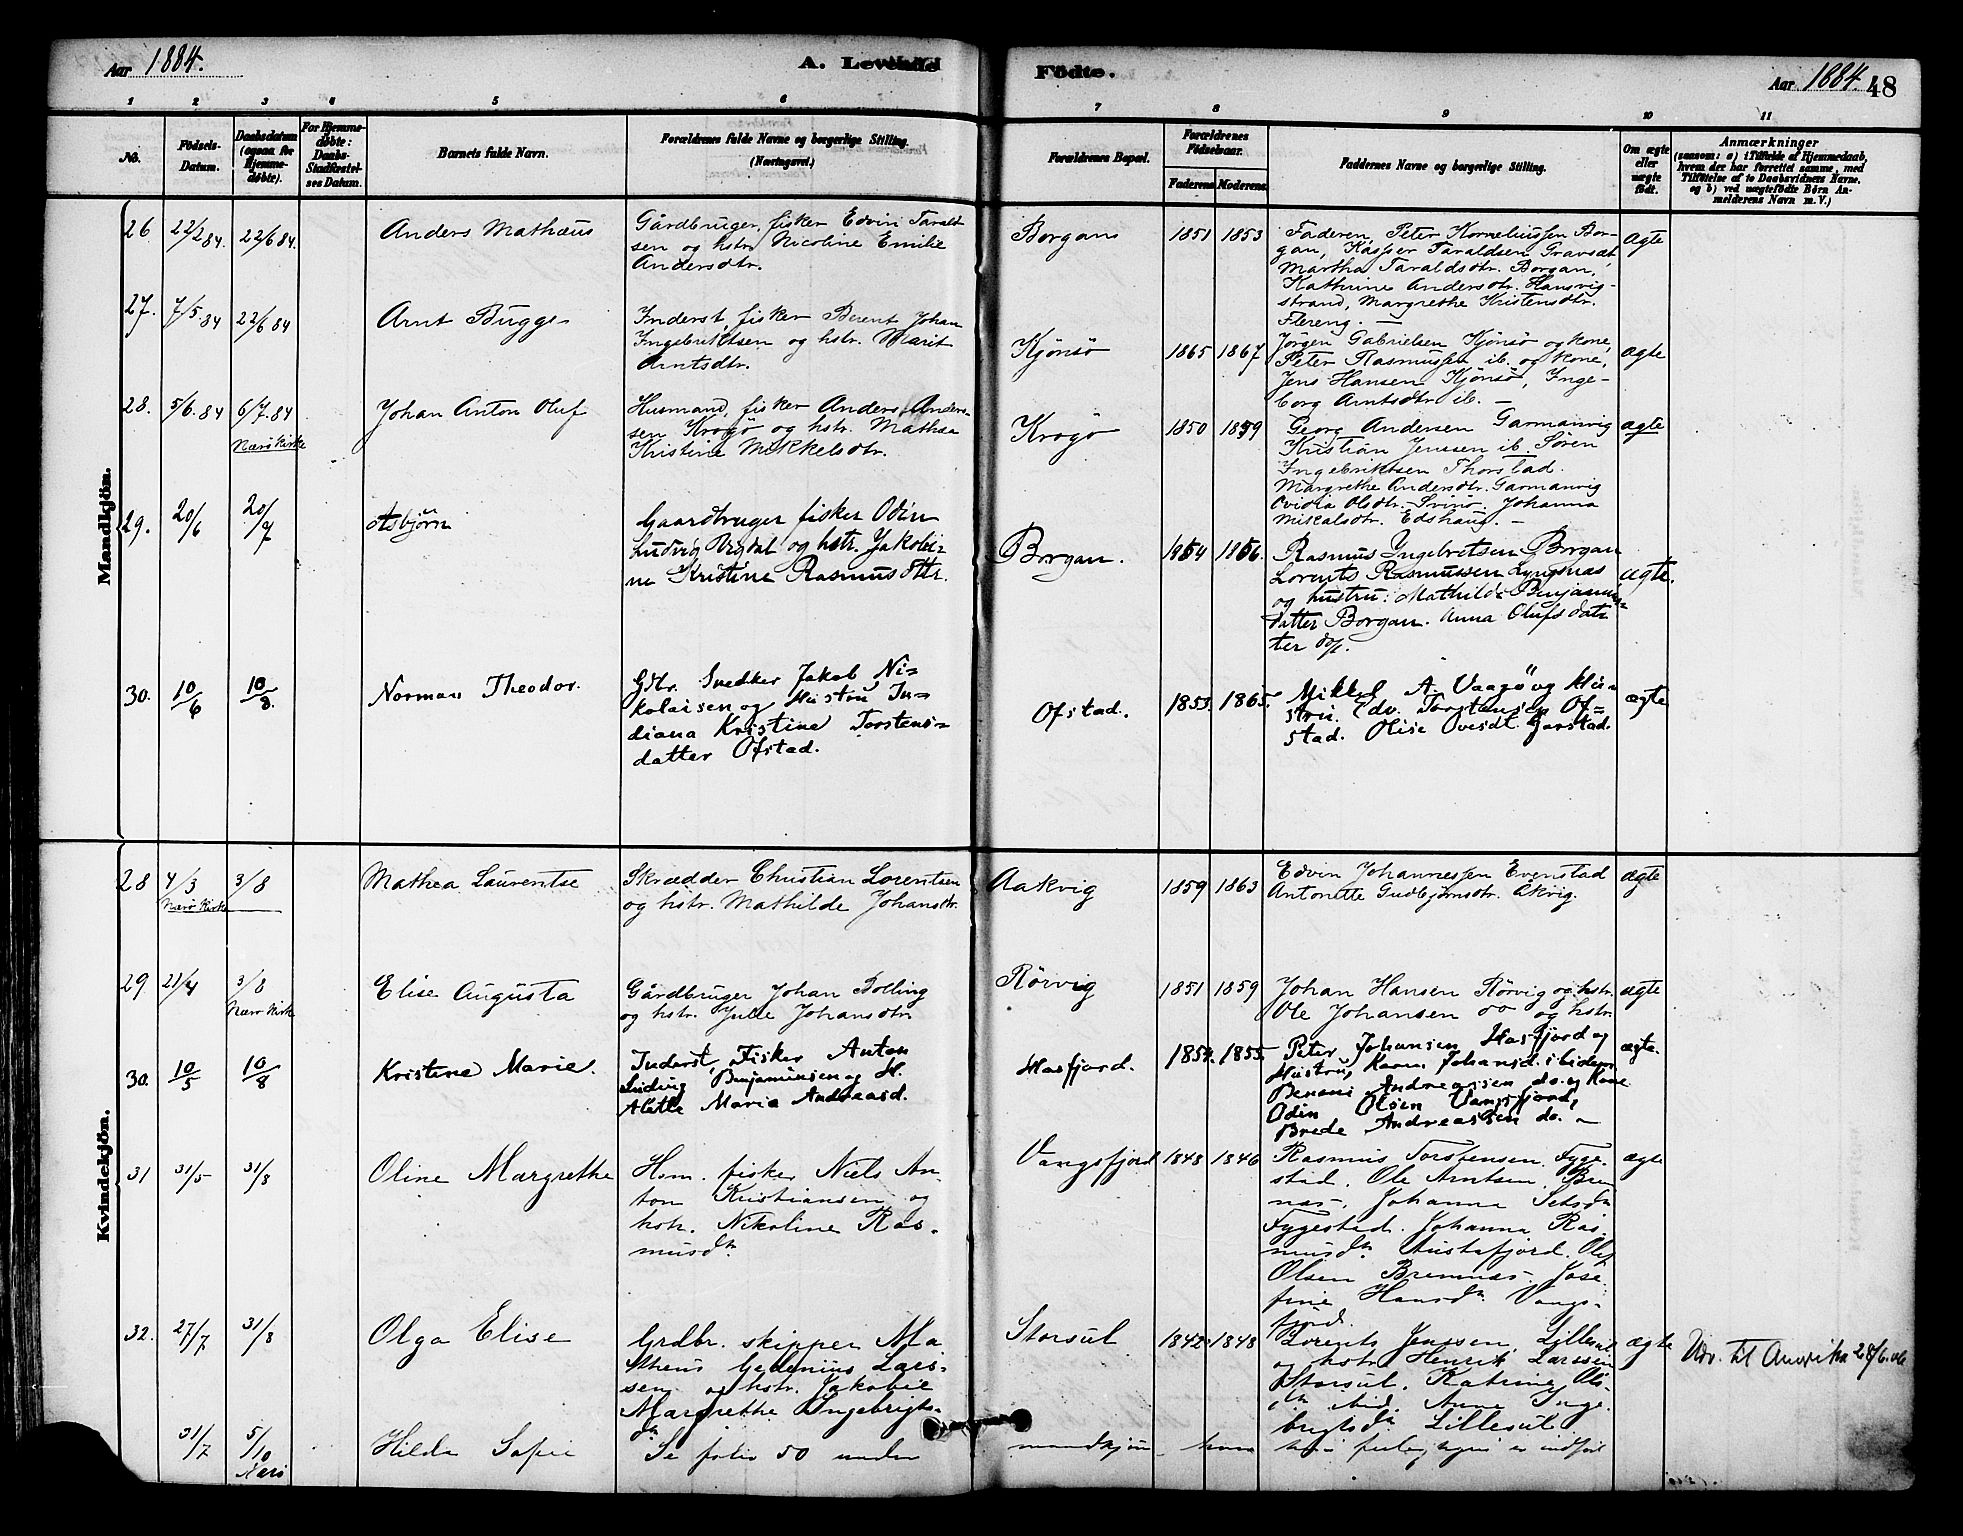 Aar 1884.
A. Levende
Födte.
Aar 1884.
48
1 2 3 4 5 6 7 8 9 10 11
No.
Födsels-
Datum.
Daabsdatum
(ogsaa for
Hjemme-
döbte).
For Hjemme-
döbte:
Daabs-
Stadfæstel-
ses Datum.
Barnets fulde Navn.
Forældrenes fulde Navne og borgerlige Stilling.
(Næringsvei.)
Forældrenes Bopæl.
Forældrenes
Födselsaar.
Faderens. Moderens.
Faddernes Navne og borgerlige Stilling.
Om ægte
eller
uægte
födt.
Anmærkninger
(saasom: a) i Tilfælde af Hjemmedaab,
hvem der har forrettet samme, med
Tilföielse af to Daabsvidners Navne,
og b) ved uægtefödte Börn An-
melderens Navn m. V.)
Mandkjön.
26 22/2 84. 22/6 84. Anders Mathæus
Gårdbruger, fisker Edvin Tarald-
sen og hstr. Nicoline Emilie
Andersdtr.
Borgans 1851 1853
Faderen, Peter Korneliussen Bor-
gan, Kasper Taraldsen Gravsæt,
Martha Taraldsdtr. Borgan,
Kathrine Andersdtr. Hansvig-
strand, Margrethe Kristensdtr.
Flereng. —
Ægte
27. 7/5 84 22/6 84 Arnt Bugge
Inderst, fisker Berent Johan
Ingebriktsen og hstr. Marit
Arntsdtr.
Kjönsö 1865 1867
Jörgen Gabrielsen Kjönsö og kone,
Peter Rasmussen ib. og kone,
Jens Hansen Kjönsö, Inge-
borg Arntsdtr ib. —
ægte
28. 5/6 84 6/7 84 Nærö Kirke Johan Anton Oluf
Husmand, fisker Anders Anders-
sen Krogö og hstr. Mathea
Kristine Mikkelsdtr.
Krogö 1850 1859
Georg Andersen Garmanvig
Kristian Jenssen ib. Sören
Ingebriktsen Thorstad.
Margrethe Andersdtr. Garmanvig
Ovidia Olsdtr. Svinö. Johanna
Mikalsdtr. Edshaug. —
ægte
29. 20/6 20/7 Asbjörn
Gaardbruger fisker Odin
Ludvig Vigdal og hstr. Jakobi-
ne Kristine Rasmusdttr.
Borgan. 1854 1856.
Rasmus Ingebretsen Borgan
Lorents Rasmussen Lyngsnæs
og hustru: Mathilde Benjamins-
datter Borgan. Anna Olufsdat-
ter do/.
ægte.
30. 10/6 10/8. Norman Theodor.
Gdbr. Snedker Jakob Ni-
kolaisen og Hustru In-
diana Kristine Torstens-
datter Ofstad.
Ofstad. 1853. 1865.
Mikkel A. Vaagö og Hu-
stru. Edv. Torstensen Of-
stad. Olise Ovesdt. Garstad.
ægte
Kvindekjön.
28 4/3 3/8 Nærö Kirke Mathea Laurentse
Skrædder Christian Lorentsen
og hstr. Mathilde Johansdtr.
Aakvig 1859 1863
Edvin Johannessen Evenstad
Antonette Gudbjörnsdtr. Åkvig.
ægte
29 21/4 3/8 Nærö Kirke Elise Augusta
Gårdbruger Johan Bolling
og hstr. Julie Johansdtr
Rörvig 1851 1859
Johan Hansen Rörvig og hstr.
Ole Johansen do og hstr
ægte
30. 10/5 10/8 Kristine Marie.
Inderst, Fisker Anton
Luding Benjaminsen og H.
Alette Maria Andreasd.
Hasfjord. 1854. 1855.
Peter Johansen Hasfjord og
Hustru, Karen Johansd.
Benoni Andreassen do. og Kone
Odin Olsen Vangsfjord,
Brede Andreassen do. —
ægte.
31 31/5 31/8 Oline Margrethe
Hsm. fisker Niels An-
ton Kristiansen og
hstr. Nikoline Ras-
musdtr
Vangsfjord 1848 1846
Rasmus Torstensen Fyge-
stad. Ole Arntsen Brem-
næs, Johanna
Fygestad. Johanna Ras-
musdtr Austafjord. Olef
Olsen Bremnæs. Jose-
fine Hansdtr Vangs-
fjord.
ægte
32. 27/7 31/8 Olga Elise
Grdbr. skipper Ma-
thæus Gedenius Lars-
sen og hstr. Jakobie
Margrethe Ingebrigts-
dtr
Storsul 1842 1848
Lorents Jenssen Lillesul
og hstr Henrik Larssen
Storsul. Katrine Ols-
dtr ibid. Anne Inge-
brigtsdtr Lillesul
ægte
Udv. til Amerika 28/6.06
31/7 5/10 Nærö Hilda Sofie
Se folio 50 under
mandkjön hvor hun feilagtigen er indfört